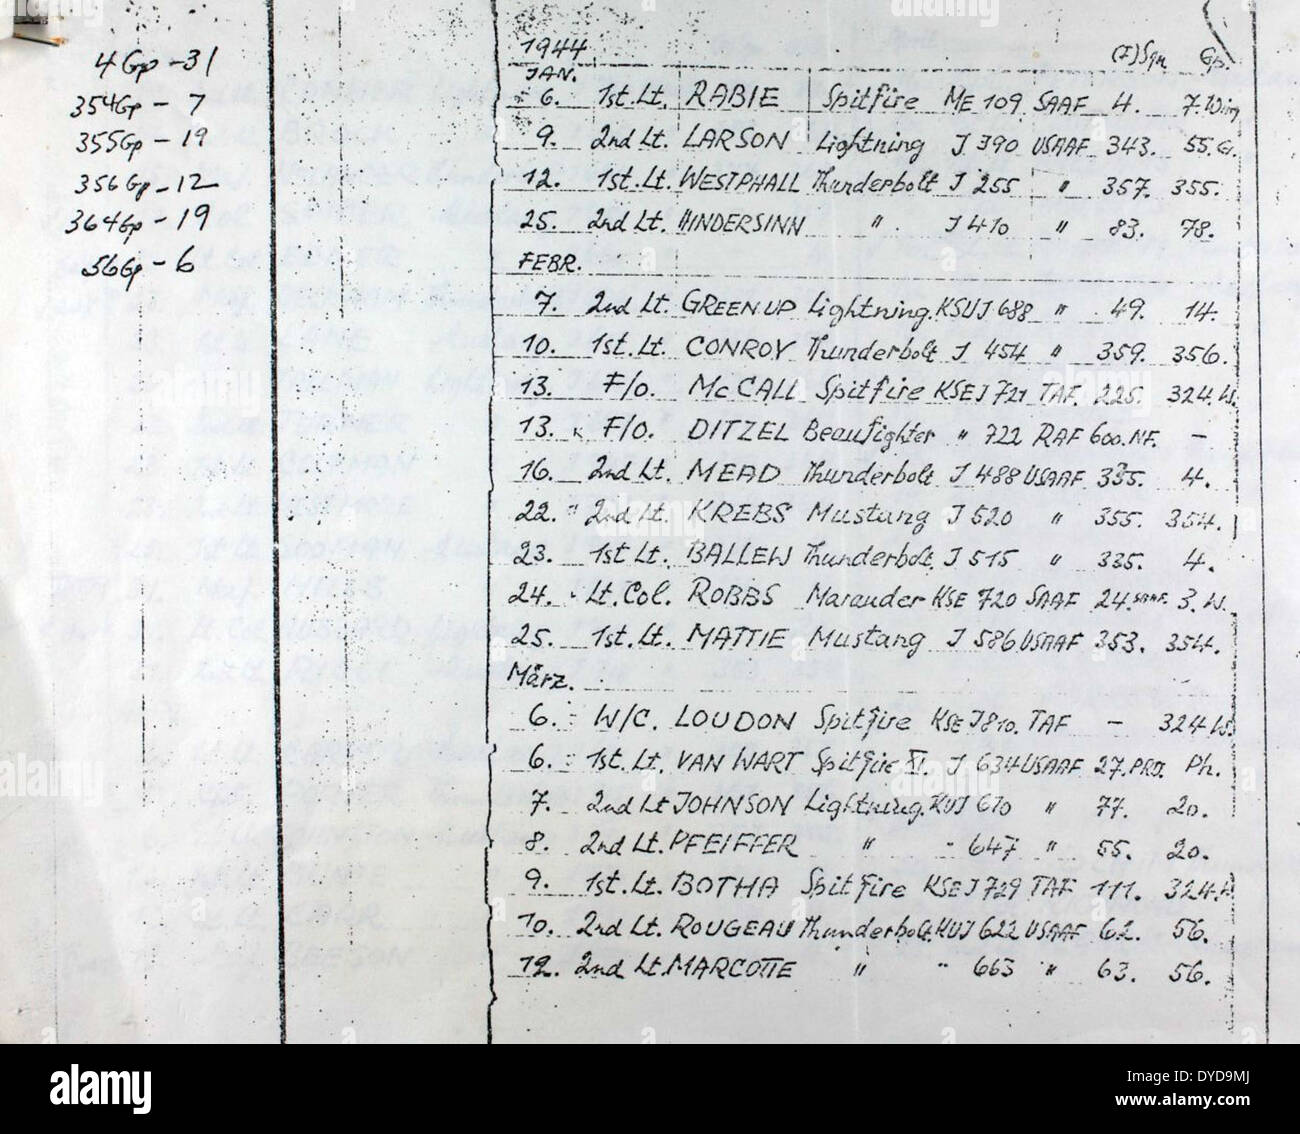 4 Gp - 31
354 Gp - 7
355 Gp - 19
356 Gp - 12
364 Gp - 19
56 Gp - 6
1944 (F) Sqn Gp.
JAN.
6. 1st. Lt. RABIE Spitfire ME 109 SAAF 4. 7. Wing
9. 2nd Lt. LARSON Lightning J 390 USAAF 343. 55. G.
12. 1st. Lt. WESTPHALL Thunderbolt J 255 " 357. 355.
25. 2nd Lt. HINDERSINN " J 410 " 83. 78.
FEBR.
7. 2nd Lt. GREENUP Lightning. KSUJ 688 " 49. 14.
10. 1st. Lt. CONROY Thunderbolt J 454 " 359. 356.
13. F/o. Mc CALL Spitfire KSE J 721 TAF. 225. 324. W.
13. F/o. DITZEL Beaufighter " 722 RAF 600. NF. -
16. 2nd Lt. MEAD Thunderbolt J 488 USAAF 335. 4.
22. 2nd Lt. KREBS Mustang J 520 " 355. 354.
23. 1st Lt. BALLEW Thunderbolt. J 515 " 335. 4.
24. Lt. Col. ROBBS Marauder KSE 720 SAAF 24. SAAF. 3. W.
25. 1st. Lt. MATTIE Mustang J 586 USAAF 353. 354.
März.
6. W/C. LOUDON Spitfire KSE J 810. TAF - 324. W.
6. 1st. Lt. VAN WART Spitfire XI. J 634 USAAF 27. PRO. Ph.
7. 2nd Lt JOHNSON Lightning. KUJ 610 " 77. 20.
8. 2nd Lt. PFEIFFER " " 647 " 55. 20.
9. 1st. Lt. BOTHA Spitfire KSE J 729 TAF 111. 324. W
10. 2nd Lt. ROUGEAU Thunderbolt. KUJ 622 USAAF 62. 56.
12. 2nd Lt. MARCOTTE " " 663 " 63. 56.
alamy
Image ID: DYD9MJ
www.alamy.com